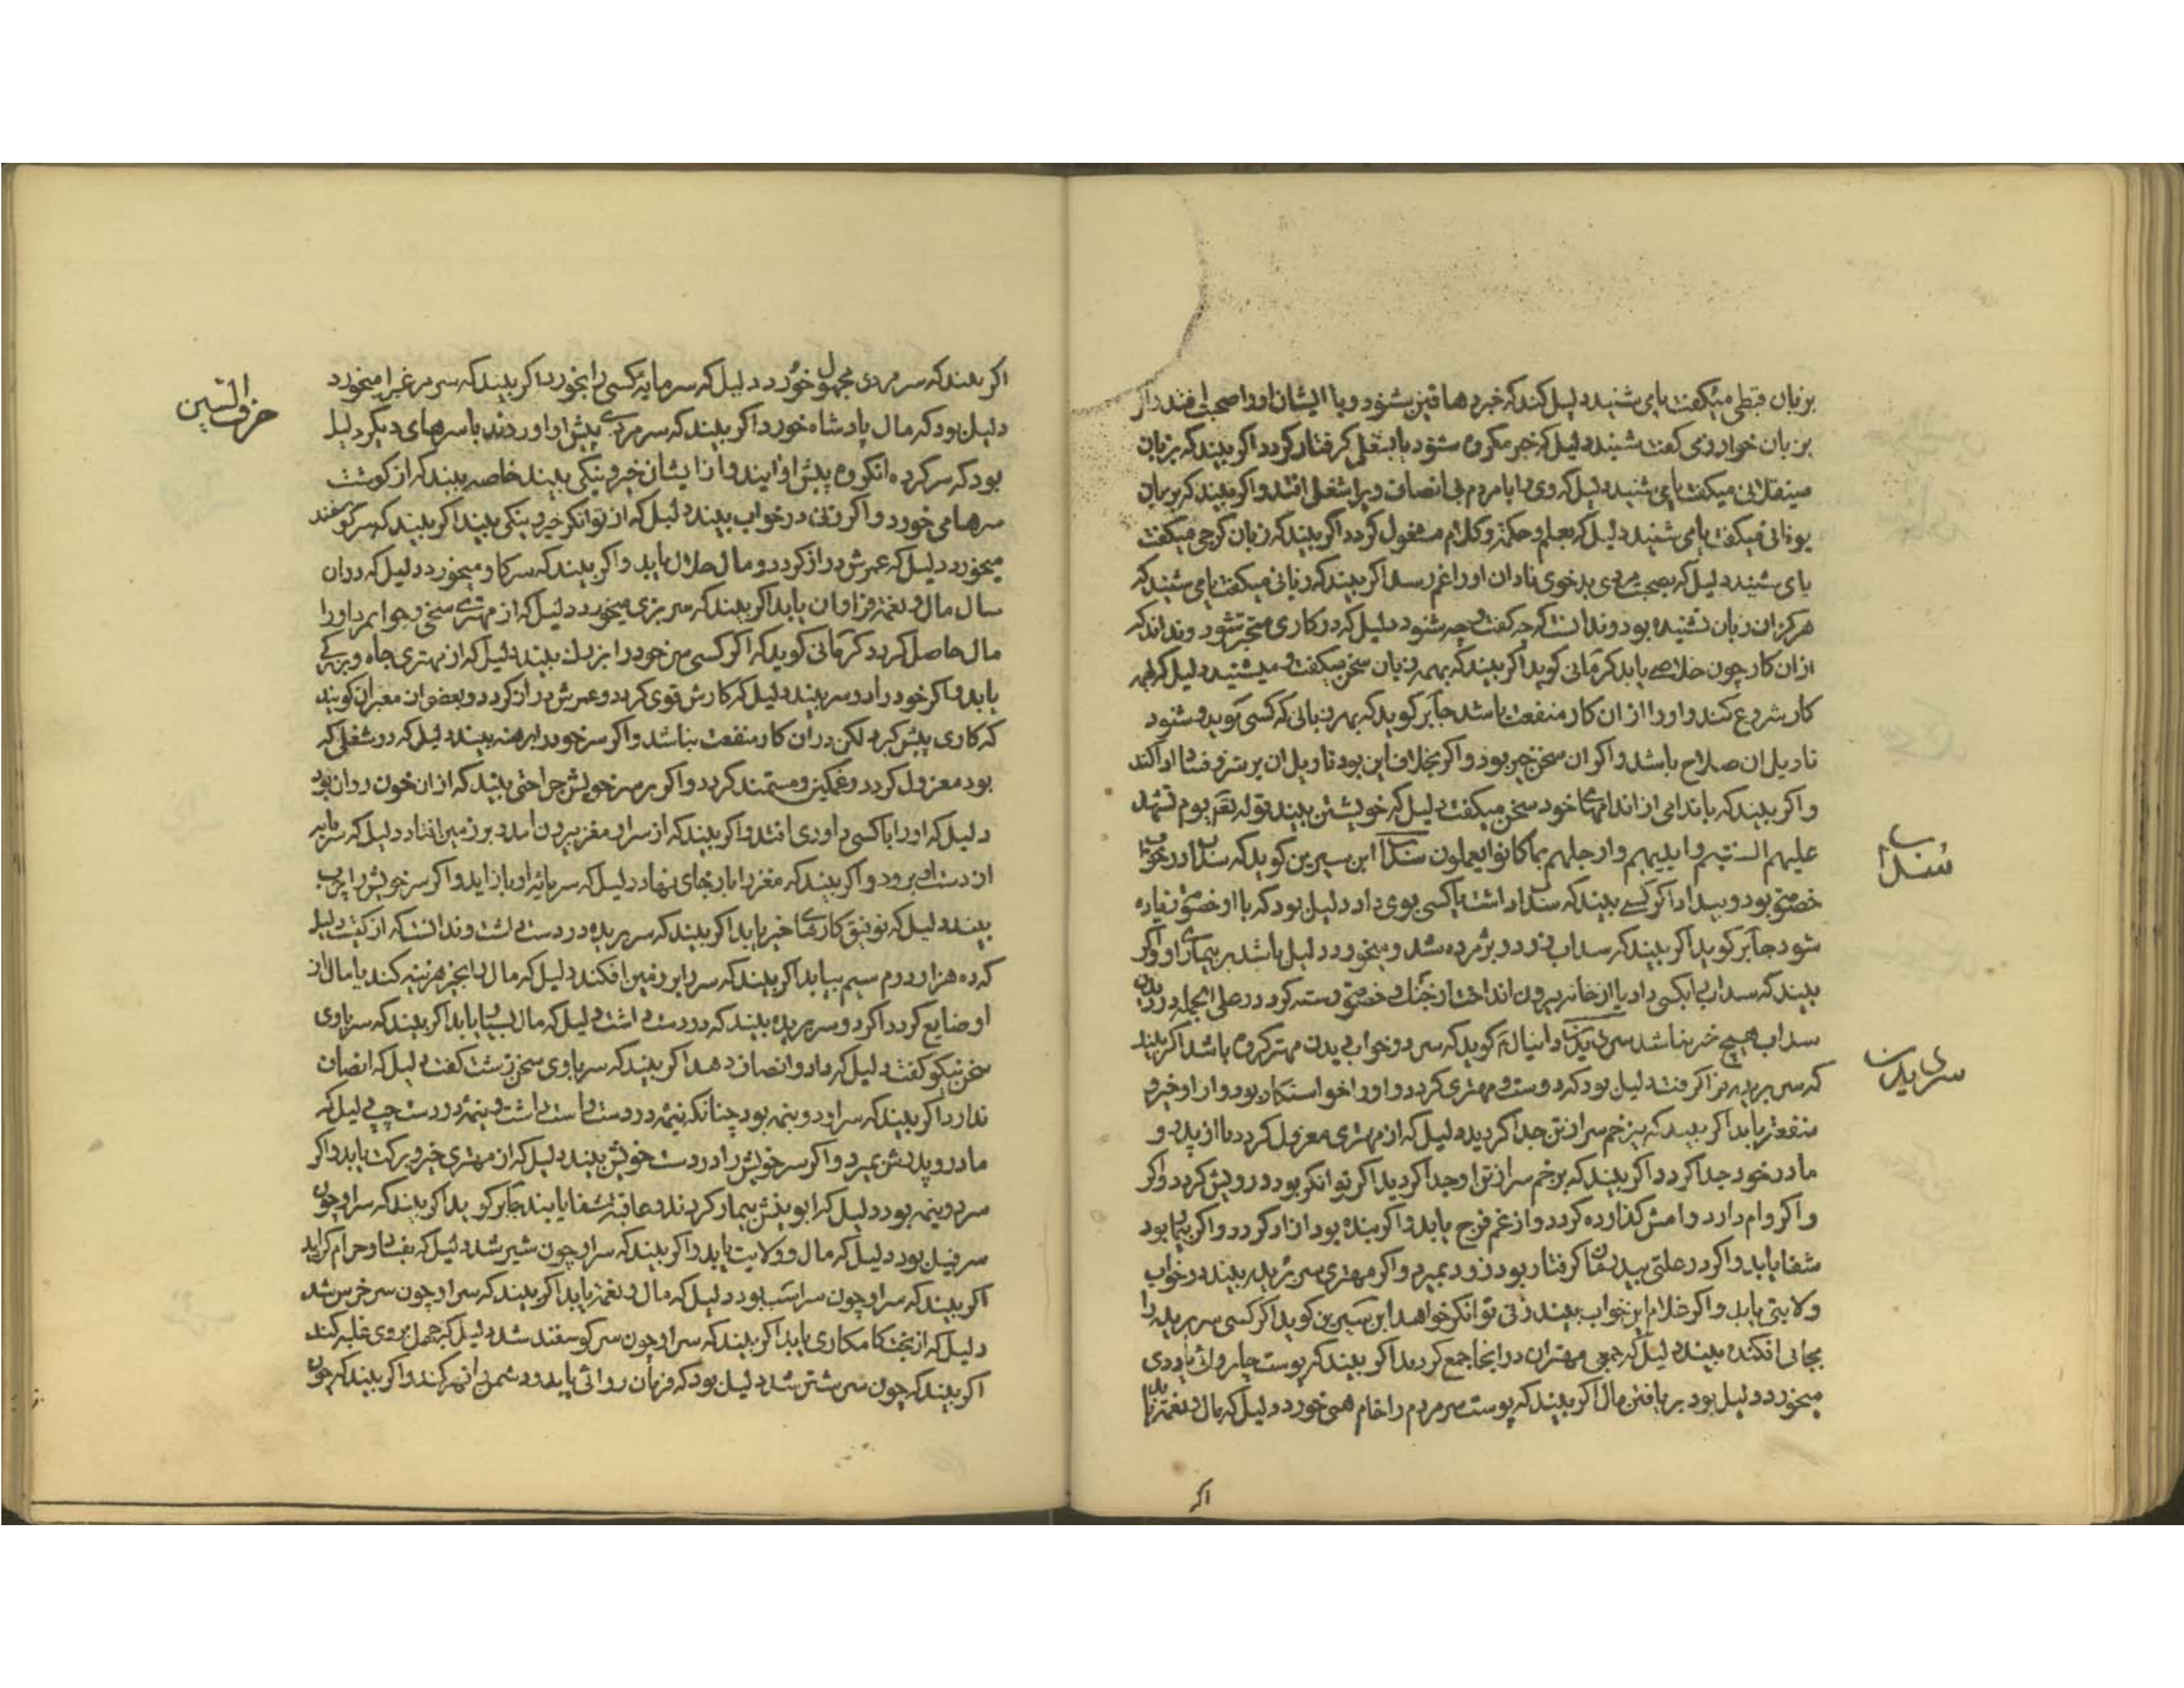 بزبان قبطی میکفت یا می شنید دلیل کند که خبر دهاقین شنود و با ایشان او را صحبت افتد
بزبان خوارزمی کفت شنید دلیل که خبر مکروه شنود یا بشغلی کرفتار کردد اکر بیند که بزبان
میکفت یا می شنید دلیل که وی را با مردم بی انصاف و پر شغل افتد و اکر بیند که بزبان
یونانی میکفت یا می شنید دلیل که بعلم و حکمة و کلام مشغول کردد اکر بیند که زبان کرجی میکفت
یا می شنید دلیل که بصحبت مردی بدخوی نادان او را غم رسد اکر بیند که زبانی میکفت یا می شنید که
هرکز ان زبان نشنیده بود و ندانست که چه کفت و چه شنود دلیل که در کاری متحیر شود و نداند که
ازان کار چون خلاص یابد کرمانی کوید اکر بیند که بهمه زبان سخن میکفت و میشنید دلیل که بهمه
کار شروع کند و او را از ان کار منفعت باشد جابر کوید که بهر زبانی که کسی کوید و شنود
تاویل ان صلاح باشد و اکر ان سخن خیر بود و اکر بخلاف این بود تاویل ان بر شر و فساد او کند
و اکر بیند که با اندامی از اندامهای خود سخن میکفت دلیل که خویشتن بیند قوله تعه یوم تشهد
علیهم السنتهم و ایدیهم و ارجلهم بما کانوا یعملون سداب ابن سیرین کوید که سداب در خواب
خصومة بود و بیداد اکر کسی بیند که سداب داشت یا کسی بوی داد دلیل بود که با او خصومة
شود جابر کوید اکر بیند که سداب زرد و پژمرده شد و میخورد دلیل باشد بر بیماری او و اکر
بیند که سداب با کسی داد یا از خانه بیرون انداخت از جنک و خصومة رسته کردد در علی الجمله در دیدن
سداب هیچ خیر نباشد سر بریدن دانیال ع کوید که سر در خواب دیدن مهتر کروه باشد اکر بیند
که سر بریده فرا کرفت دلیل بود که دوست مهتری کردد و او را خواستکار بود و از او خیر و
منفعة یابد اکر بیند که بی زخم سر از تن جدا کردید دلیل که از مهتری معزول کردد یا از پدر و
مادر خود جدا کردد اکر بیند که بزخم سر از تن او جدا کردید اکر توانکر بود درویش کردد و اکر
و اکر وام دارد وامش کذارده کردد و از غم فرج یابد و اکر بنده بود ازاد کردد و اکر بیمار بود
شفا یابد و اکر در علتی کرفتار بود زود بمیرد و اکر مهتری سر بریده بیند در خواب
ولایتی یابد و اکر غلام این خواب بیند زنی توانکر خواهد ابن سیرین کوید اکر کسی سر بریده را
بجائی افکنده بیند دلیل که جمعی مهتران در انجا جمع کردند اکر بیند که پوست چاروای یا ددی
میخورد دلیل بود بر یافتن مال اکر بیند که پوست سر مردم را خام همی خورد دلیل که مال و نعمة یابد
سداب
سر بریدن
اکر
اکر بیند که سر مردی مجهول خورد دلیل که سرمایه کسی را بخورد اکر بیند که سر مرغ را میخورد
دلیل بود که مال پادشاه خورد اکر بیند که سر مردی پیش او اوردند با سرهای دیکر دلیل
بود که سرکرده ان کروه پیش او ایند و از ایشان خیر و نیکی بیند خاصه بیند که از کوشت
سرها می خورد و اکر زنی در خواب بیند دلیل که از توانکر خیر و نیکی بیند اکر بیند که سر کوسفند
میخورد دلیل که عمرش دراز کردد و مال حلال یابد و اکر بیند که سر کاو میخورد دلیل که دران
سال مال و نعمة فراوان یابد اکر بیند که سر بزی میخورد دلیل که از مهتری سخی و جوانمرد او را
مال حاصل کردد کرمانی کوید که اکر کسی سر خود را بزرک بیند دلیل که از مهتری جاه و بزرکی
یابد و اکر خود را دو سر بیند دلیل که کارش قوی کردد و عمرش دراز کردد و بعضی از معبران کویند
که کاری پیش کیرد لکن در ان کار منفعت نباشد و اکر سر خود را برهنه بیند دلیل که در شغلی که
بود معزول کردد و غمکین و مستمند کردد و اکر بر سر خویش جراحتی بیند که ازان خون روان بود
دلیل که او را با کسی داوری افتد و اکر بیند که از سر او مغز بیرون امد و بر زمین افتاد دلیل که سرمایه
از دست او برود و اکر بیند که مغز را باز جای نهاد دلیل که سرمایه او باز اید و اکر سر خویش را چرب
بیند دلیل که توفیق کارهای خیر یابد اکر بیند که سر بریده در دست داشت و ندانست که از کیست دلیل
که ده هزار درم سیم بیابد اکر بیند که سر را بر زمین افکند دلیل که مال را بخیر هزینه کند یا مال از
او ضایع کردد اکر دو سر بریده بیند که در دست داشت دلیل که مال بسیار یابد اکر بیند که سر با وی
سخن نیکو کفت دلیل که داد و انصاف دهد اکر بیند که سر با وی سخن زشت کفت دلیل که انصاف
ندارد اکر بیند که سر او دو نیمه بود چنانکه نیمه در دست راست داشت و نیمه در دست چپ دلیل که
مادر و پدرش بمیرد و اکر سر خویش را در دست خویش بیند دلیل که از مهتری خیر و برکت یابد و اکر
سر دو نیمه بود دلیل که بیمار کردند و عاقبة شفا یابند جابر کوید اکر بیند که سر او چون
سر فیل بود دلیل که مال و ولایت یابد و اکر بیند که سر او چون شیر شد دلیل که بفساد و حرام کراید
اکر بیند که سر او چون سر اسب بود دلیل که مال و نعمة یابد اکر بیند که سر او چون سر خرس شد
دلیل که از بخت کامکاری یابد اکر بیند که سر او چون سر کوسفند شد دلیل که جهل بر وی غلبه کند
اکر بیند که چون سر شتر شد دلیل بود که فرمان روائی یابد و دشمن را قهر کند و اکر بیند که چون
حرف السین